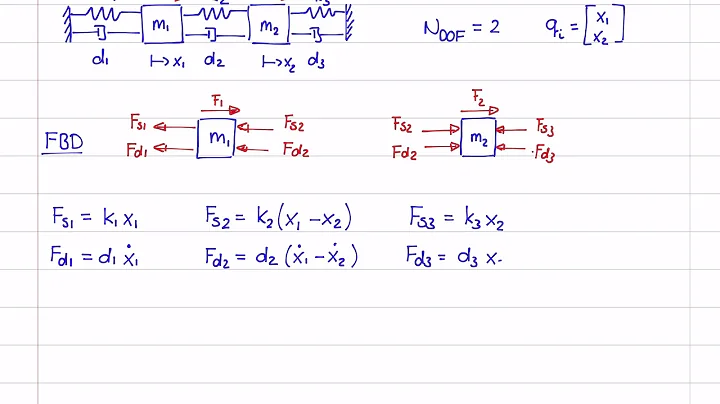 m₁ m₂
d₁ ↦x₁ d₂ ↦x₂ d₃
N_DOF = 2 qᵢ = [x₁ x₂]
F₁ F₂
Fs₁ Fs₂ Fs₂ Fs₃
FBD m₁ m₂
Fd₁ Fd₂ Fd₂ Fd₃
Fs₁ = k₁ x₁ Fs₂ = k₂(x₁ - x₂) Fs₃ = k₃ x₂
Fd₁ = d₁ ẋ₁ Fd₂ = d₂ (ẋ₁ - ẋ₂) Fd₃ = d₃ x